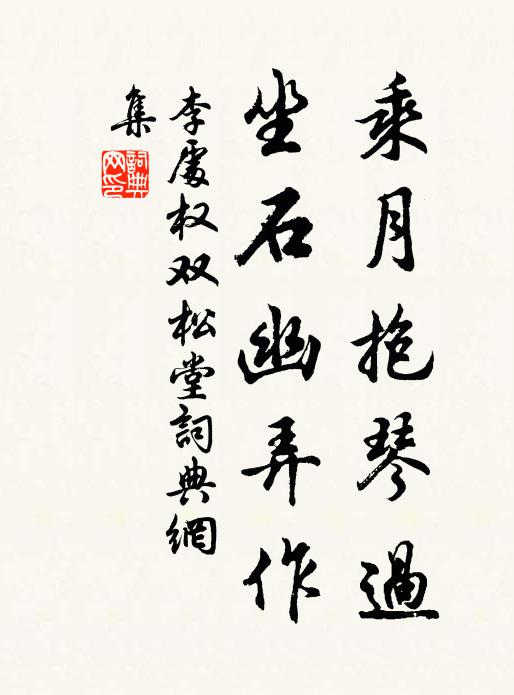 乘月抱琴過
坐石幽弄作
李處权双松堂詞典網
集
詞典网印